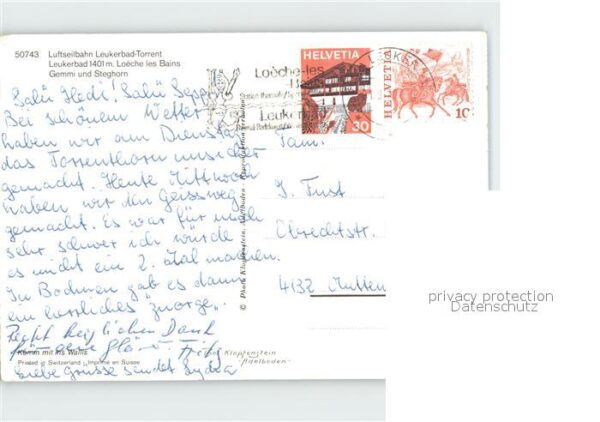 50743 Luftseilbahn Leukerbad-Torrent
Leukerbad 1401 m. Loèche les Bains
Gemmi und Steghorn
Salü Hedi! Salü Sepp
Bei schönem Wetter
haben wir am Dienstag
das Torrenthorn unsicher
gemacht. Heute Mittwoch
haben wir den Geissweg
gemacht. Es war für mich
sehr schwer ich würde
es nicht ein 2. Mal machen.
In Bodmen gab es dann
ein herrliches "znorge".
Recht herzlichen Dank
Komm mit ins Wallis
Printed in Switzerland - Imprimé en Suisse
Liebe Grüsse sendet Lydia
© Photo Klopfenstein, Adelboden - Reproduktion verboten
Klopfenstein
Adelboden
Loèche-les
Leukerbad
HELVETIA
30
HELVETIA
10
LEUKER
Fam.
J. Fust
Obrechtstr.
4132 Mutten
privacy protection
Datenschutz